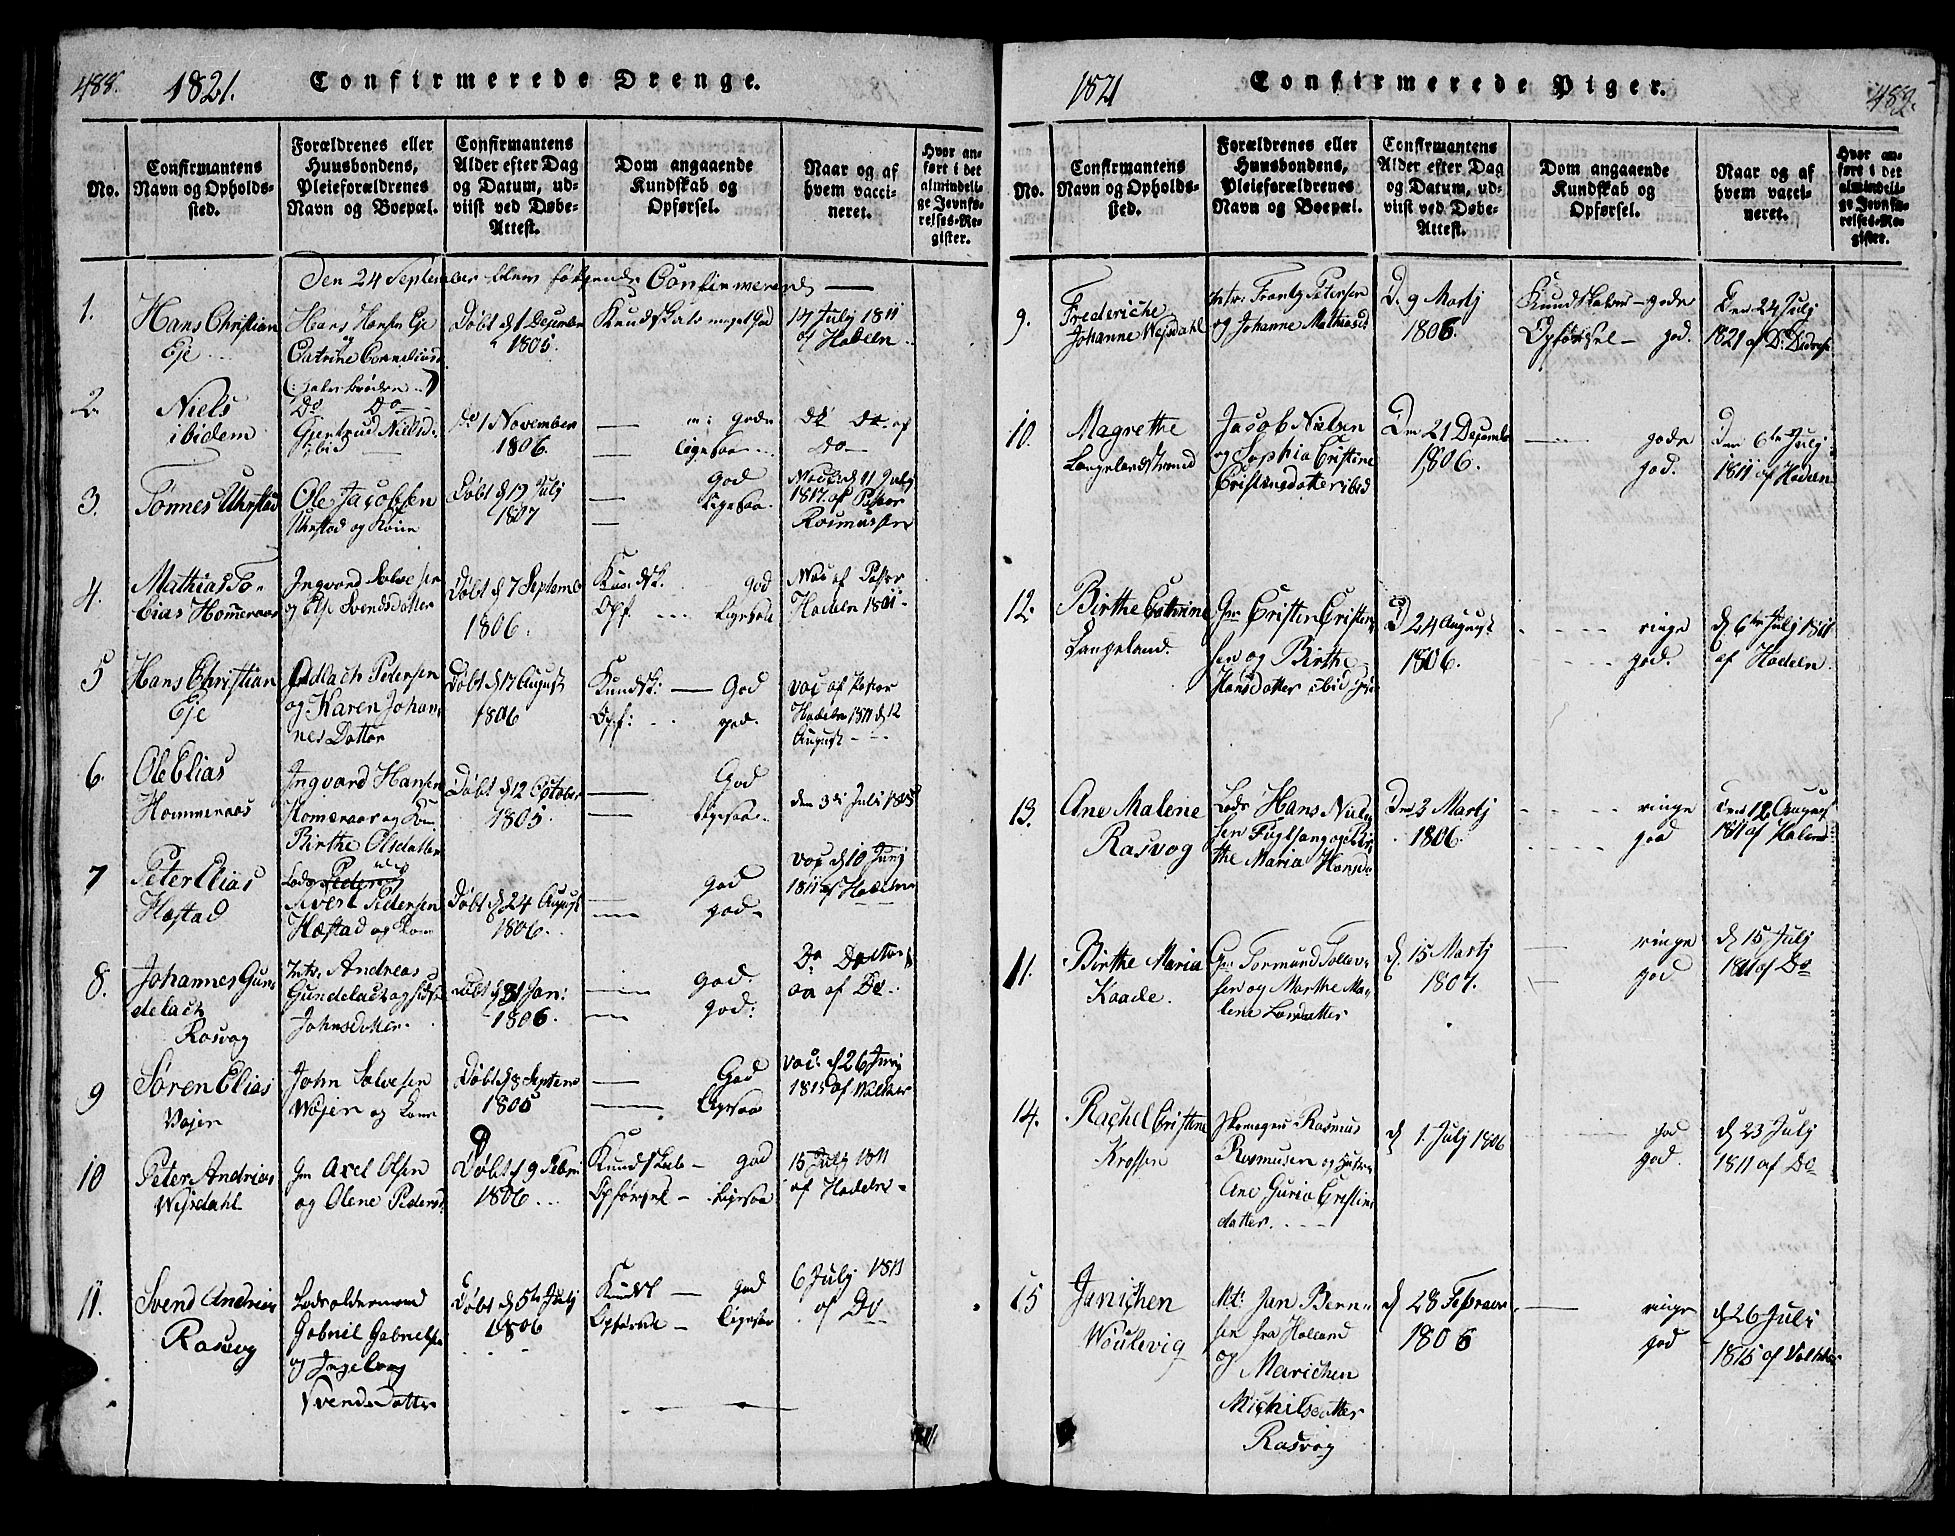 488.
1821.
Confirmerede Drenge.
No.
Confirmantens
Navn og Opholds-
sted.
Forældrenes eller
Huusbondens,
Pleieforældrenes
Navn og Boepæl.
Confirmantens
Alder efter Dag
og Datum, ud-
viist ved Døbe-
Attest.
Dom angaaende
Kundskab og
Opførsel.
Naar og af
hvem vacci-
neret.
Hvor an-
ført i det
almindeli-
ge Jevnfø-
relses-Re-
gister.
Den 24 September bleve følgende Confirmerede
1.
Hans Christian
Eje
Hans Hansen Eje
og
Catrine Corneliusd
Døbt d 1 December
1805.
Kundskab meget god
17 July 1811
af Hadeln
2.
Niels
ibidem
Do Do
Gjertrud Nielsd.
ibid
Do 1 November
1806.
m: gode
ligesaa
Do Do af
Do
3.
Tönnes Uhrstad
Ole Jacobsen
Uhrstad og Kone
Döbt d 19 July
1807
God
Ligesaa.
d 11 July
1817. af Pastor
Rasmussen
4.
Mathias To-
bias Hommeraas
Ingvord Salvesen
og Else Svendsdotter
Döbt d 7 Septemb
1806.
Kundsk. god
Opf. Ligesaa
Vac af Pastor
Hadeln 1811.
5
Hans Christian
Eje
Pedersen
og Karen Johan
nes Datter
Döbt d 17 August
1806
Kundsk: God
Opf: god.
vac af Pastor
Hadeln 1811 d 12
August
6.
Ole Elias
Hommeraas
Ingvard Hansen
Homeraas og Kone
Birthe Olsdatter
Döbt d 12 October
1805.
God
Ligesaa.
den 3di Juli 1815
7
Peter Elias
Hæstad
Lods
Sivert Pedersen
Hæstad og Kone
Döbt d 24 August
1806.
god
god.
vac d 10 Juny
1811 af Hadeln
8.
Johannes Gun
delach
Rasvog
Andreas
Gundelach og
Johnsdotter.
Döbt d 31 Jan:
1806.
god.
god:
Do
af Do.
9
Sören Elias
Vojen
John Salvesen
Wojen og Kone
Döbt d 8 Septem
1805
God
Ligesaa
vac: d 26 Juny
1815 af Walker
10
Peter Andrias
Wesdahl
Gm Axel Olsen
og Olene Peders
Döbt d 9 Febri
1806
Kundskab - god
Opförsel - Ligesaa
15 July 1811
af Hadeln
11.
Svend Andrias
Rasvog
Lodsoldermand
Gabriel Gabrielsen
og Ingeborg
Svends Datter
Döbt d 5te July
1806
Kundsk - god
Opförsel - Ligesaa
6 July 1811
af Do
1821
Confirmerede Piger.
489.
No.
Confirmantens
Navn og Opholds-
sted.
Forældrenes eller
Huusbondens,
Pleieforældrenes
Navn og Boepæl.
Confirmantens
Alder efter Dag
og Datum, ud-
viist ved Døbe-
Attest.
Dom angaaende
Kundskab og
Opførsel.
Naar og af
hvem vacci-
neret.
Hvor an-
ført i det
almindeli-
ge Jevnfø-
relses-Re-
gister.
9.
Frederiche
Johanne Wesdahl
Frantz Petersen
og Johanne Mathiasd
D. 9 Martj
1806.
Kundskaben - gode
Opförsel - god.
Den 24 July
1821 af Dr.
10.
Magrethe
Langelandstrand
Jacob Nielsen
og Sophia Cristine
Cristensdotter ibid
Den 21 Decemb
1806.
gode
god.
Den 6te July
1811 af Hadeln
12.
Birthe Cathrine
Langeland.
Gm Cristen Cristen-
sen og Birthe
Hansdotter ibid
D 24 August
1806.
ringe
god.
d 6te July 1811
af Hadeln.
13.
Ane Malene
Rasvog
Lods Hans Niel
sen Fuglsang og Bir
the Maria Hansd.
Den 2 Martj
1806.
ringe
god
Den 12 August
1811 af Hadeln
11.
Birthe Maria
Kaade.
Gm Tormund Tollev-
sen og Marthe Ma-
lene Larsdatter
d 15 Martj
1807.
ringe
god
d 15 July
1811 af Do
14.
Rachel Cristine
Krossen
Rasmus
Rasmusen og Hustru
Ane Guria Cristins
datter.
d 1. July 1806
god
god.
d 23 July
1811 af Do
15
Janichen
Woulevig
Mt: Jan Bern-
sen fra Holland
og Marichen
Michilsdatter
Rasvog
d 28 Februar
1806
ringe
god
d 26 Juli
1815 af Valker